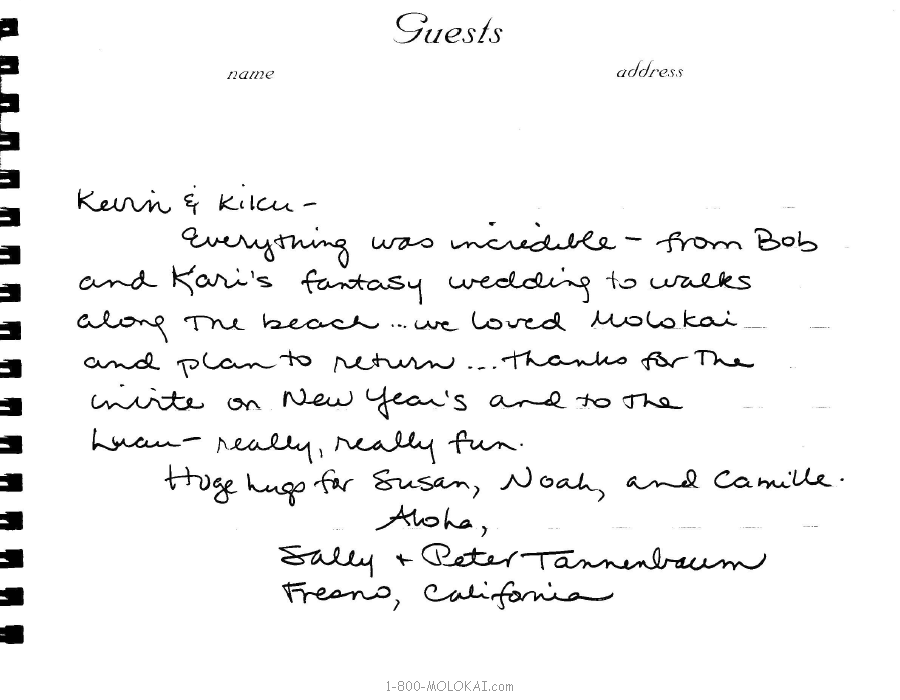 Guests
name address
Kevin & Kiku -
Everything was incredible - from Bob
and Kari's fantasy wedding to walks
along the beach ... we loved Molokai
and plan to return ... thanks for the
invite on New Year's and to the
Luau - really, really fun.
Huge hugs for Susan, Noah, and Camille.
Aloha,
Sally + Peter Tannenbaum
Fresno, California
1-800-MOLOKAI.com